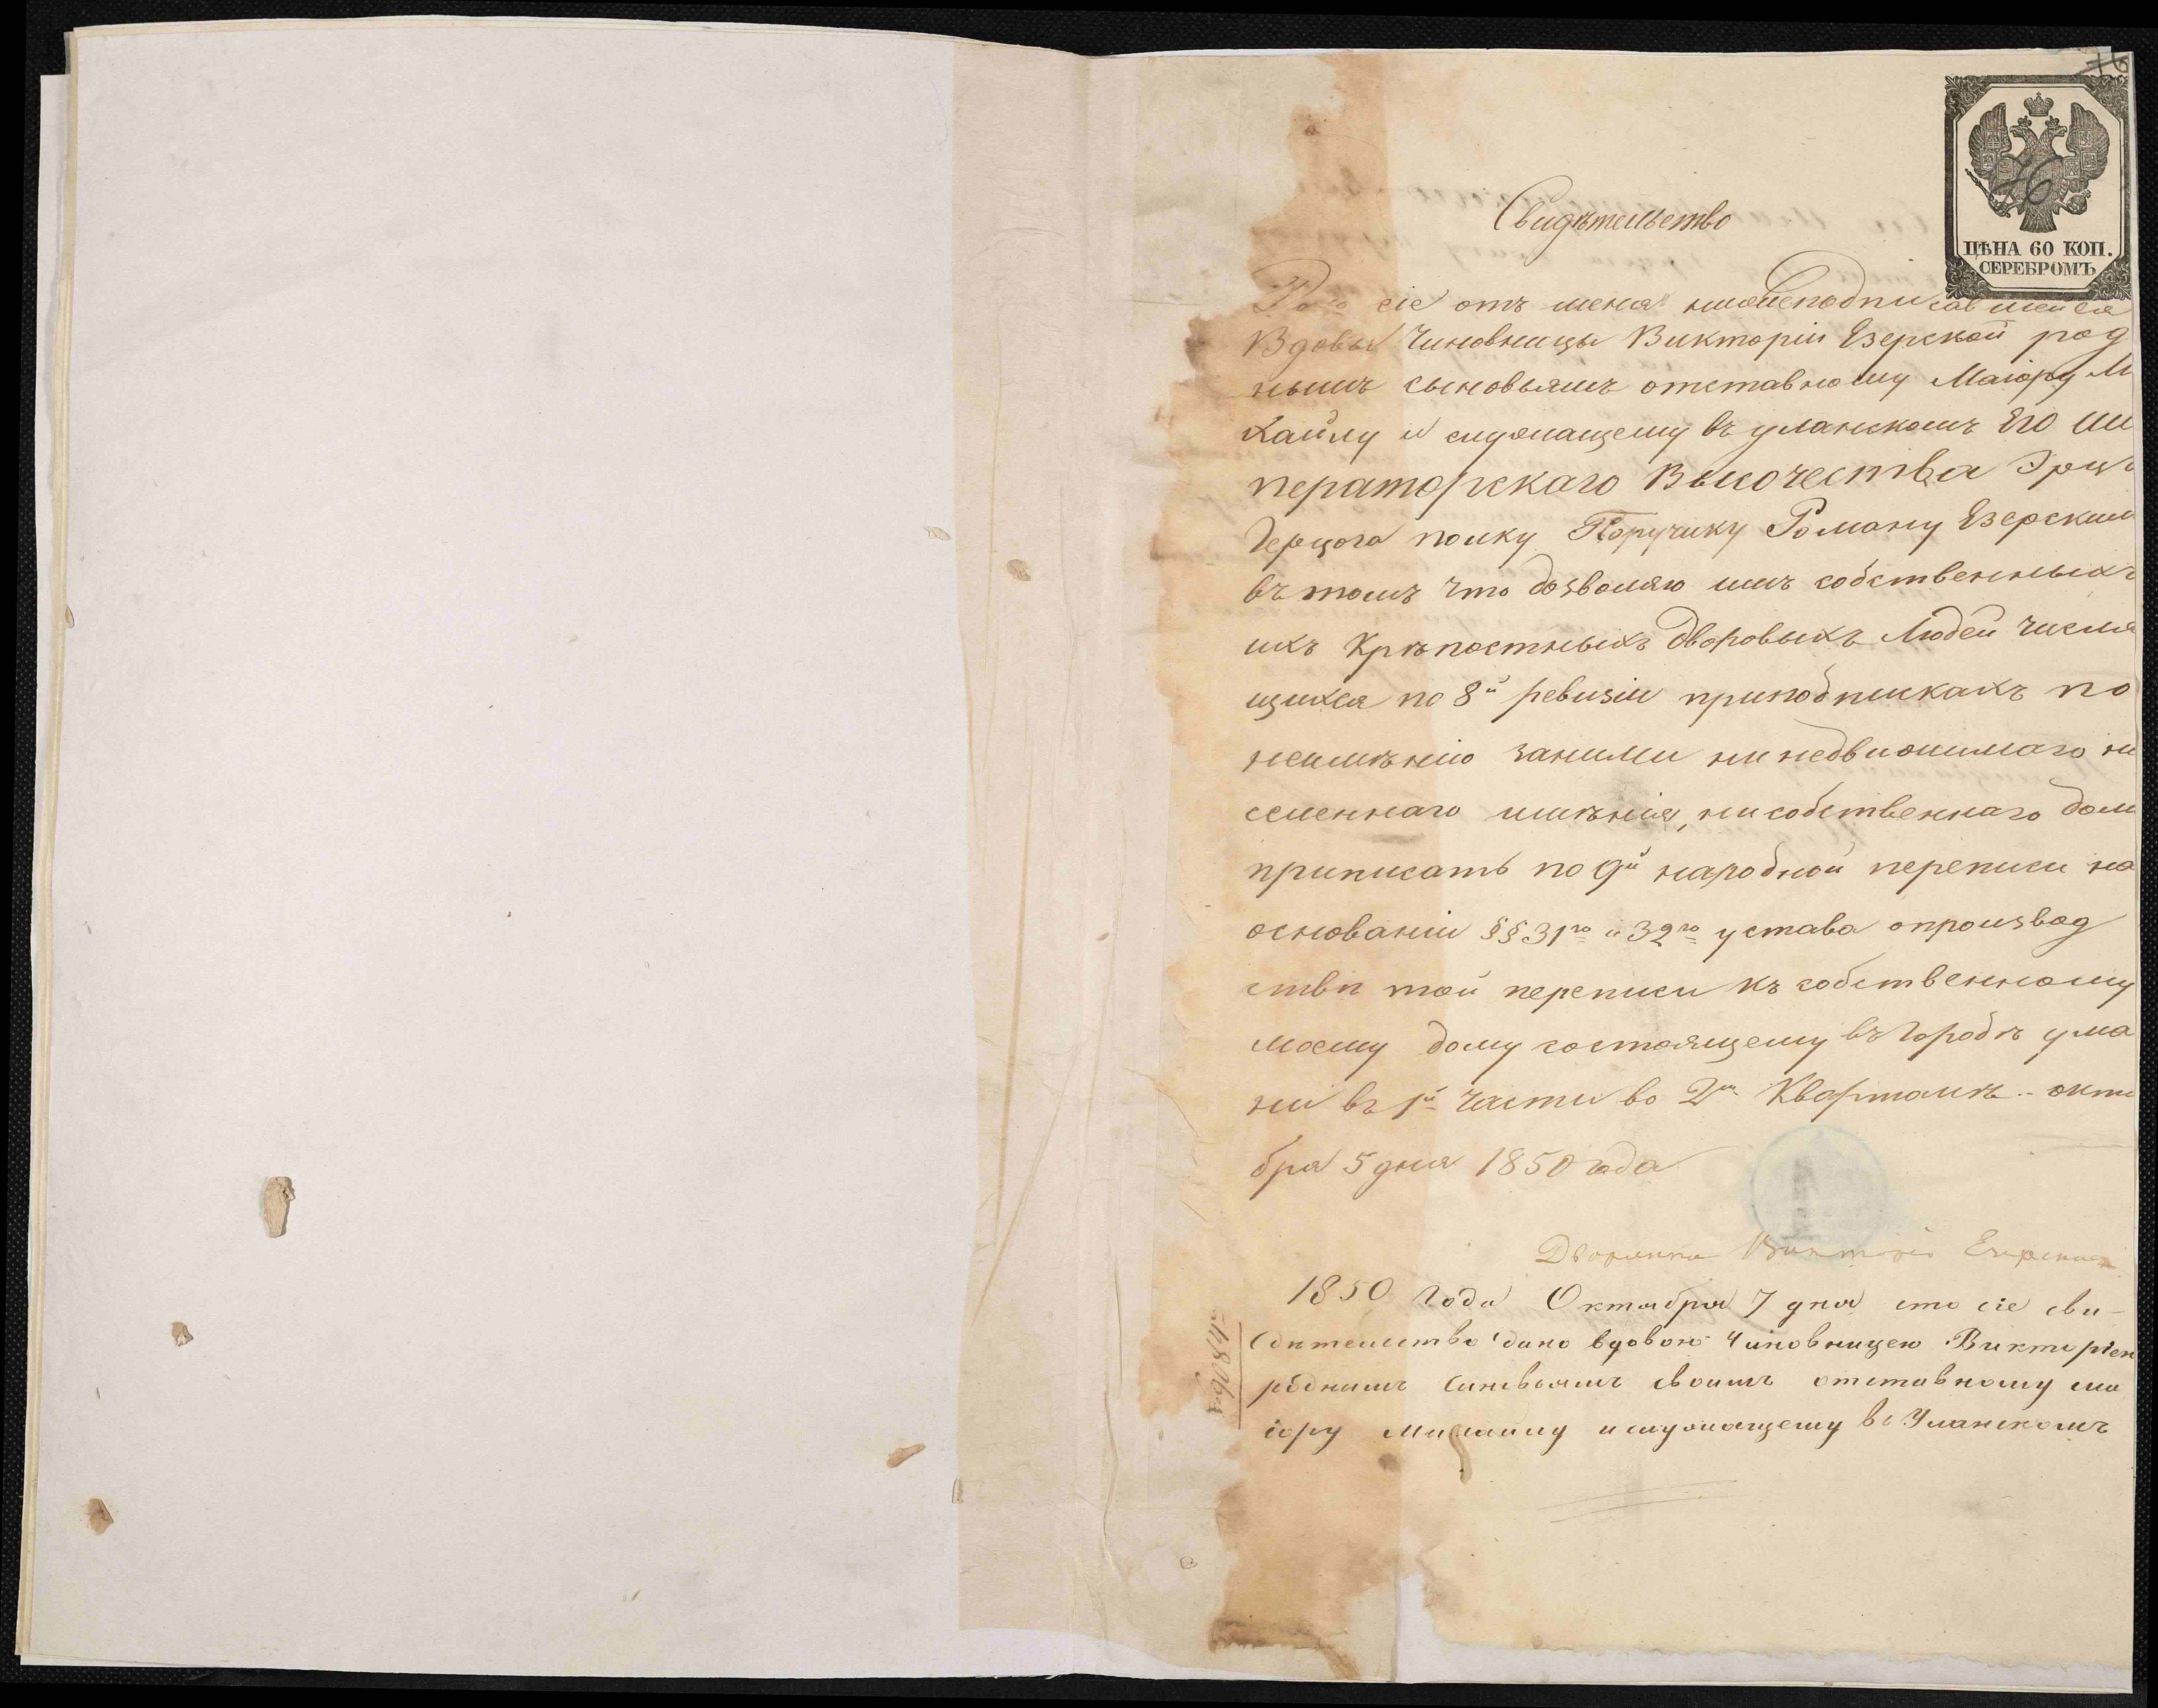 76
ЦѢНА 60 КОП.
СЕРЕБРОМЪ
Свидѣтельство
сіе отъ меня нижеподписавшейся
Вдовы Чиновницы Викторіи Езерской род
нымъ сыновьямъ отставному Маіору Ми
хайлу и служащему въ уланскомъ Его Им
ператорскаго Высочества Эрцъ
Герцога полку Поручику Роману Езерским
въ томъ что дозволяю имъ собственныхъ
ихъ Крѣпостныхъ дворовыхъ Людей числя
щихся по 8й ревизіи приподпискахъ по
неимѣнію заними ни недвижимаго на
селеннаго имѣнія, ни собственнаго дом
приписать по 9й народной переписи на
основаніи §§ 31го и 32го устава опроизвод
ствѣ той переписи къ собственному
моему дому состоящему въ Городѣ Ума
ни въ 1й части во 2м Кварталѣ.. октя
бря 5 дня 1850 года
Дворянка Викторія Езерская
1850 Года Октября 7 дня что сіе сви-
дѣтельство дано вдовою Чиновницею Викторіею
роднымъ синовьямъ своимъ отставному ма
іору Михайлу и служащему въ Уланскомъ